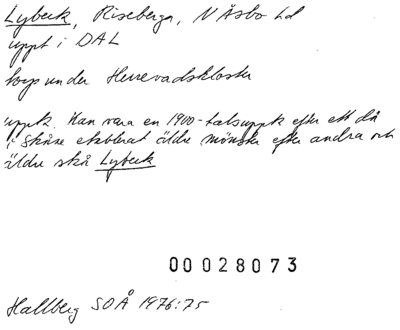 Lybeck, Riseberga, N Åsbo hd
uppt i DAL
torp under Herrevadskloster
uppk. Kan vara en 1900-talsuppk efter ett då
i Skåne etablerat äldre mönster efter andra och
äldre skå Lybeck
00028073
Hallberg SOÅ 1976:75